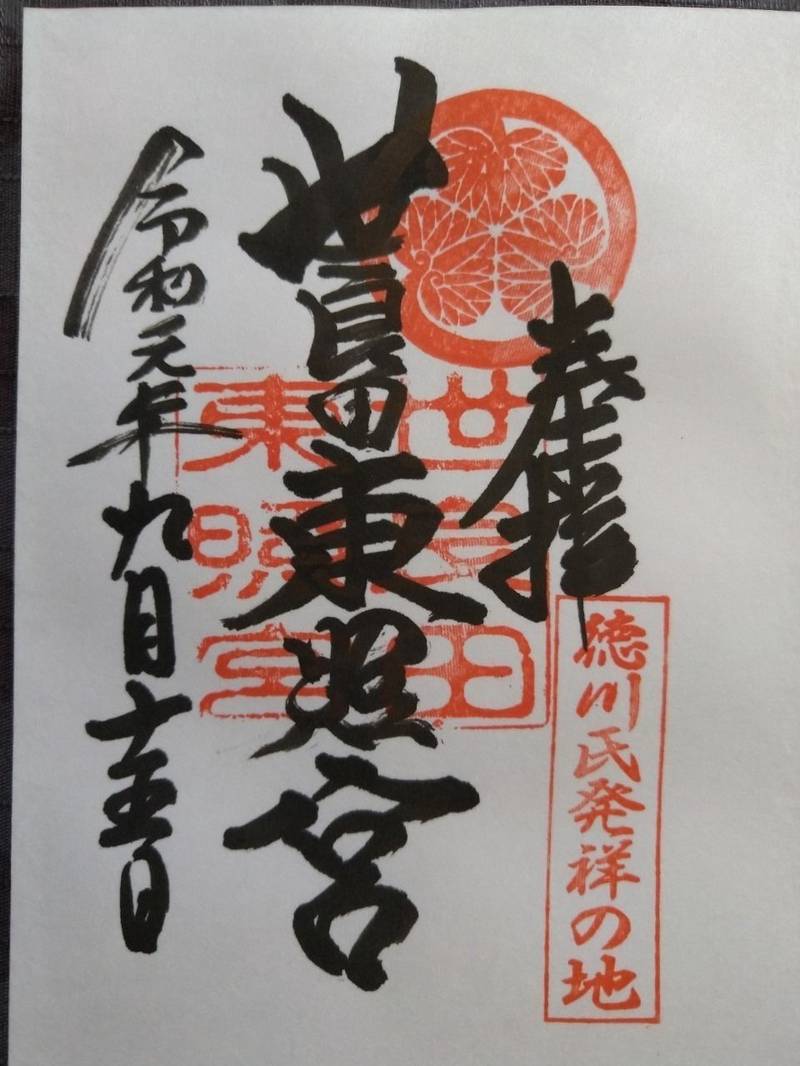 奉拝
徳川氏発祥の地
世良田東照宮
世良田
東照宮
令和元年九月十五日